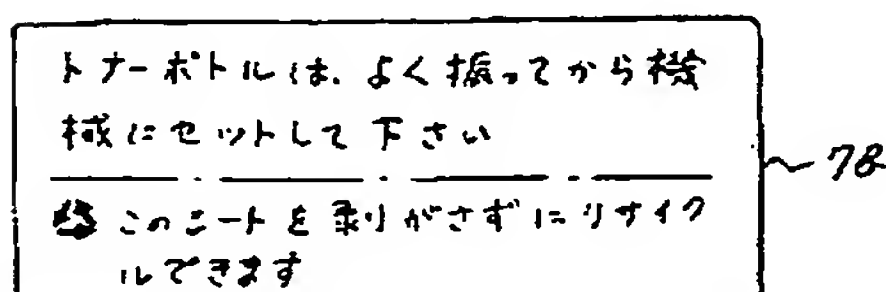 トナーボトルは、よく振ってから機
械にセットして下さい
このシートを剥りがさずにリサイク
ルできます
78